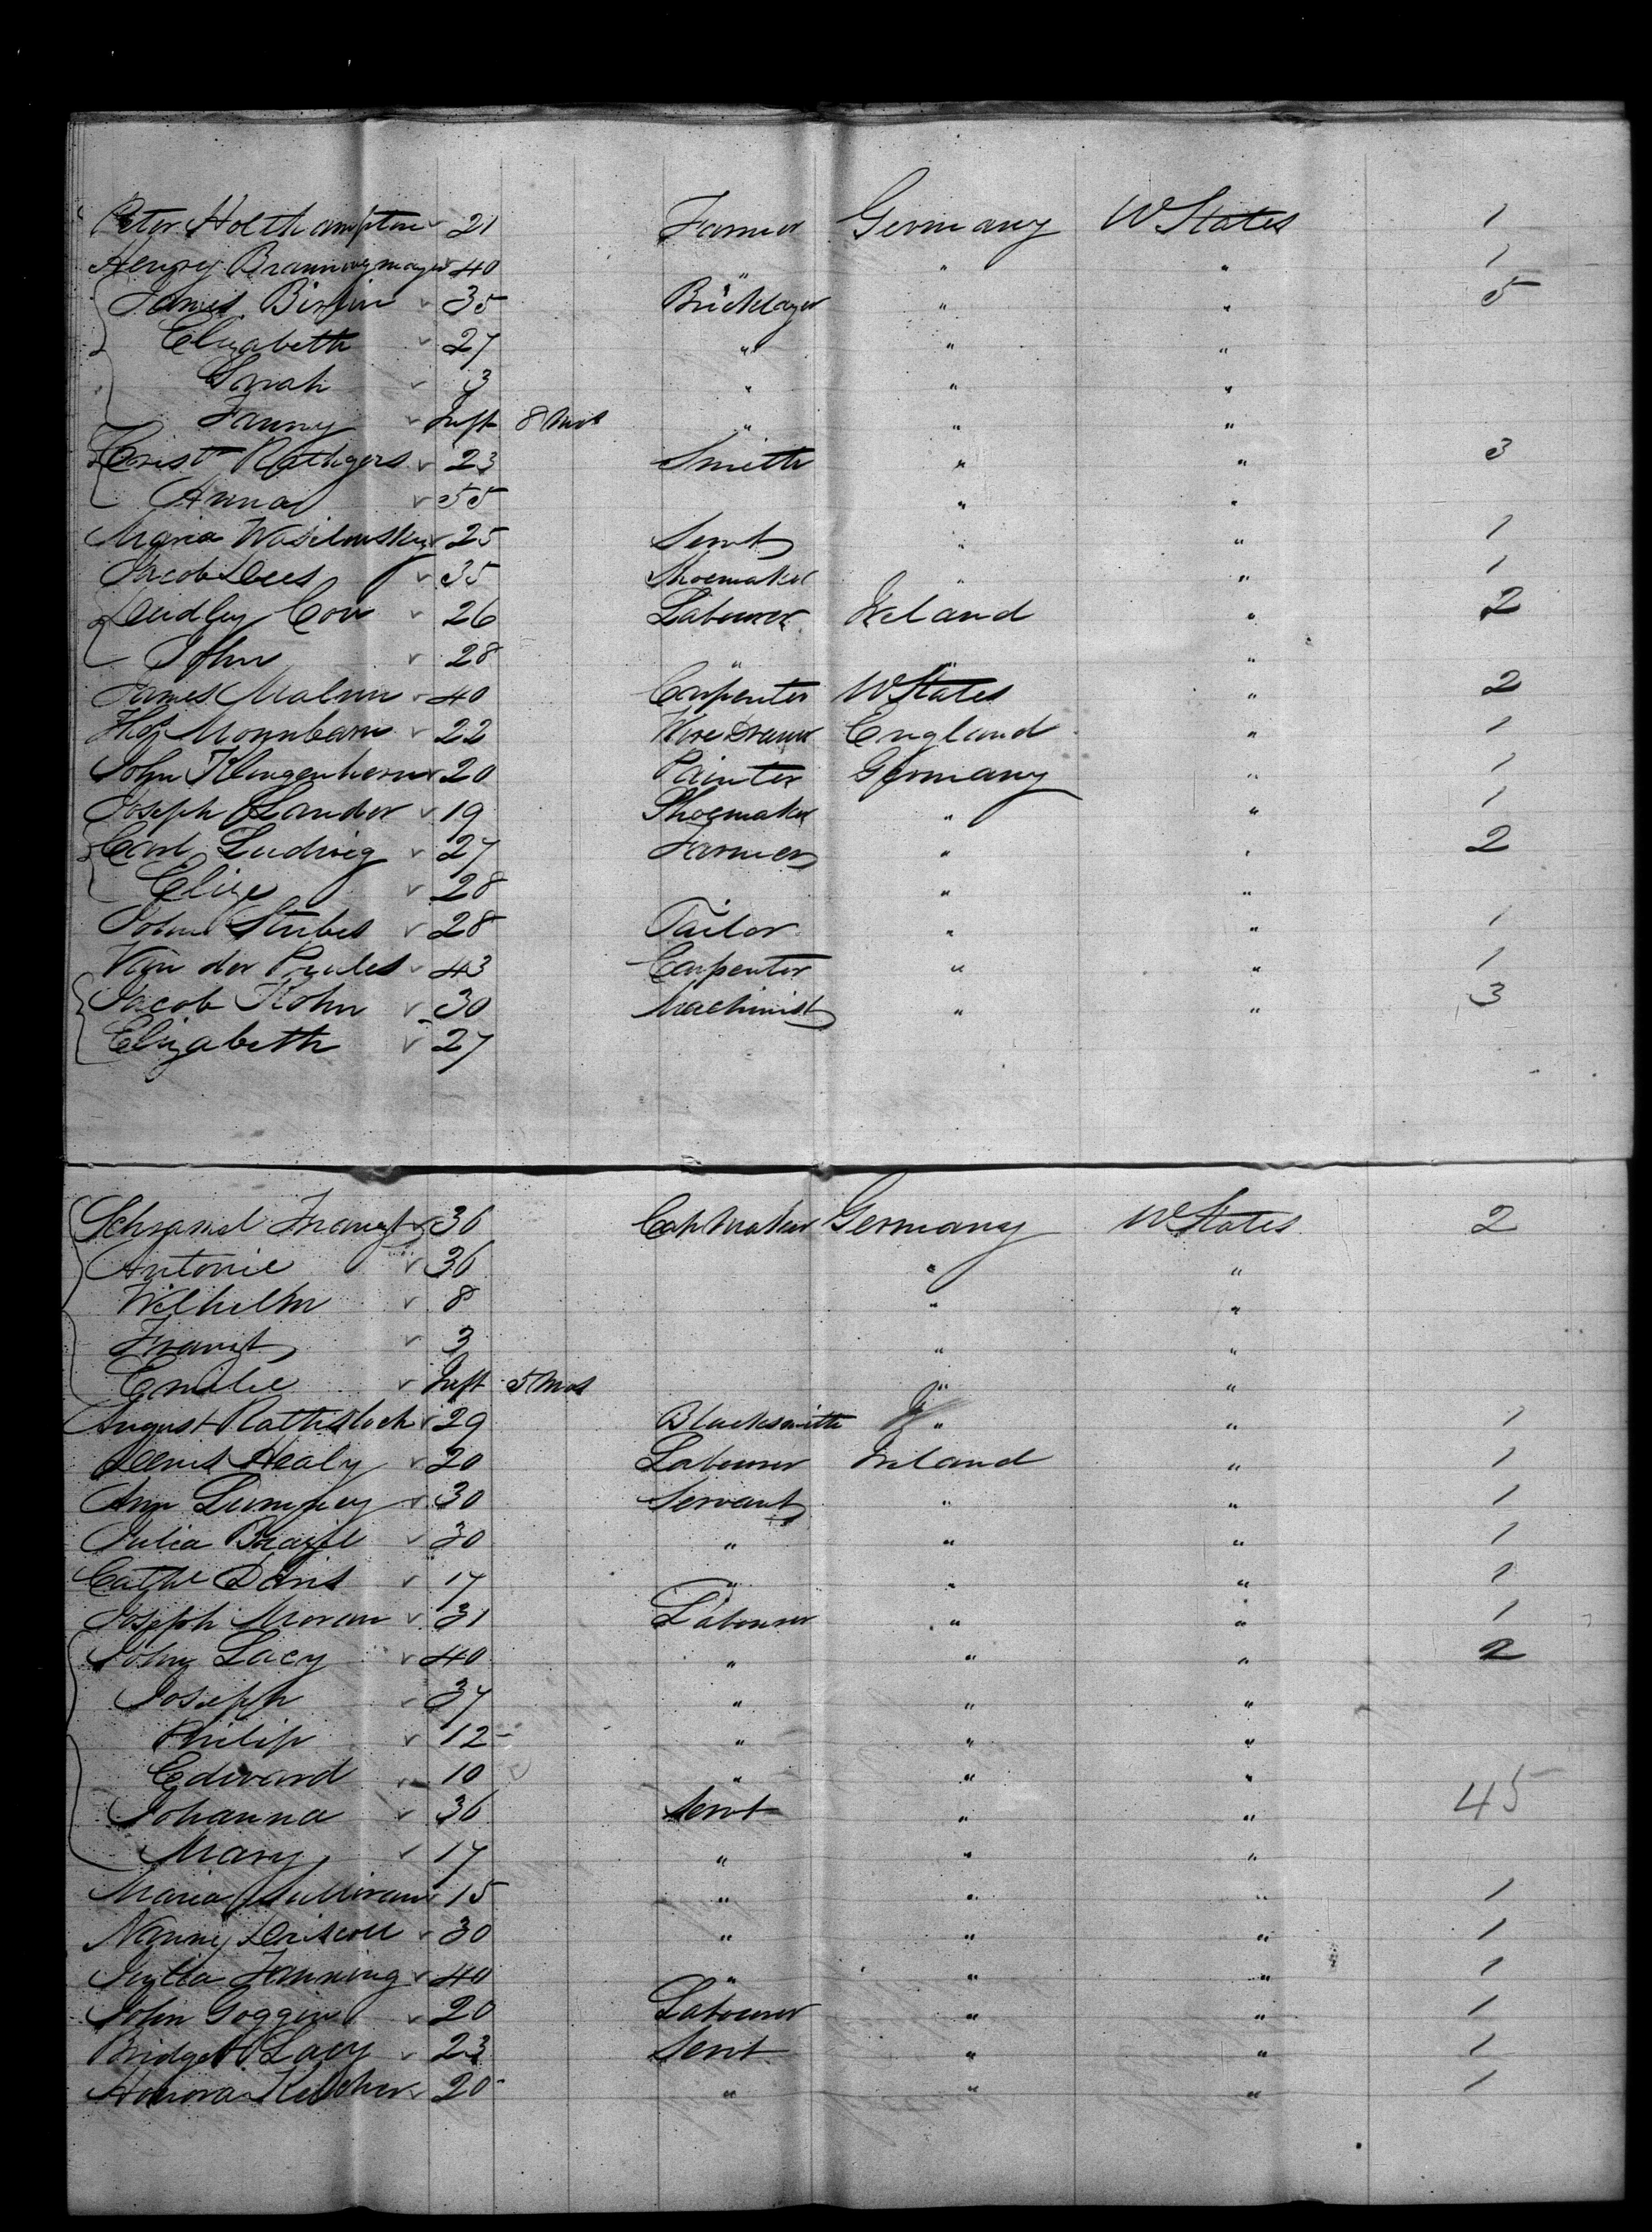 Peter Holthampton 21 Farmer Germany U States 1
Henry 40 " " " 1
James 35 Bricklayer " " 5
Elizabeth 27 " " "
Sarah 3 " " "
Fanny Inft 8 Mos " " "
Christn Rathgers 23 Smith " " 3
Anna 55 " "
Maria Wasilewsky 25 Servt " " 1
Jacob Dees 35 Shoemaker " " 1
Dudley Cou 26 Labourer Ireland " 2
John 28 " " "
James Malum 40 Carpenter U States " 2
22 Wire Drawer England " 1
John Klingenhern 20 Painter Germany " 1
Joseph Lander 19 Shoemaker " " 1
Carl Ludwig 27 Farmer " " 2
Elize 28 " "
John Stubes 28 Tailor " " 1
Van der 43 Carpenter " " 1
Jacob Kohn 30 Machinist " " 3
Elizabeth 27
Schramel Franzt 36 Germany U States 2
Antonie 36 " "
Wilhelm 8 " "
Franzt 3 " "
Emilie Inft 5 Mos " "
August Rathsloch 29 Blacksmith " " 1
Denis Healy 20 Labourer Ireland " 1
Ann 30 Servant " " 1
Julia Brazil 30 " " " 1
Cathe Davis 17 " " " 1
Joseph Moran 31 Labourer " " 1
John Lacy 40 " " " 2
Joseph 37 " " "
Philip 12 " " "
Edward 10 " " "
Johanna 36 Servt " " 45
Mary 17 " " "
Maria Sullivan 15 " " " 1
Nanny Driscoll 30 " " " 1
Julia Fanning 40 " " " 1
John Goggin 20 Labourer " " 1
Bridget Lacy 23 Servt " " 1
Honora Kelcher 20 " " " 1